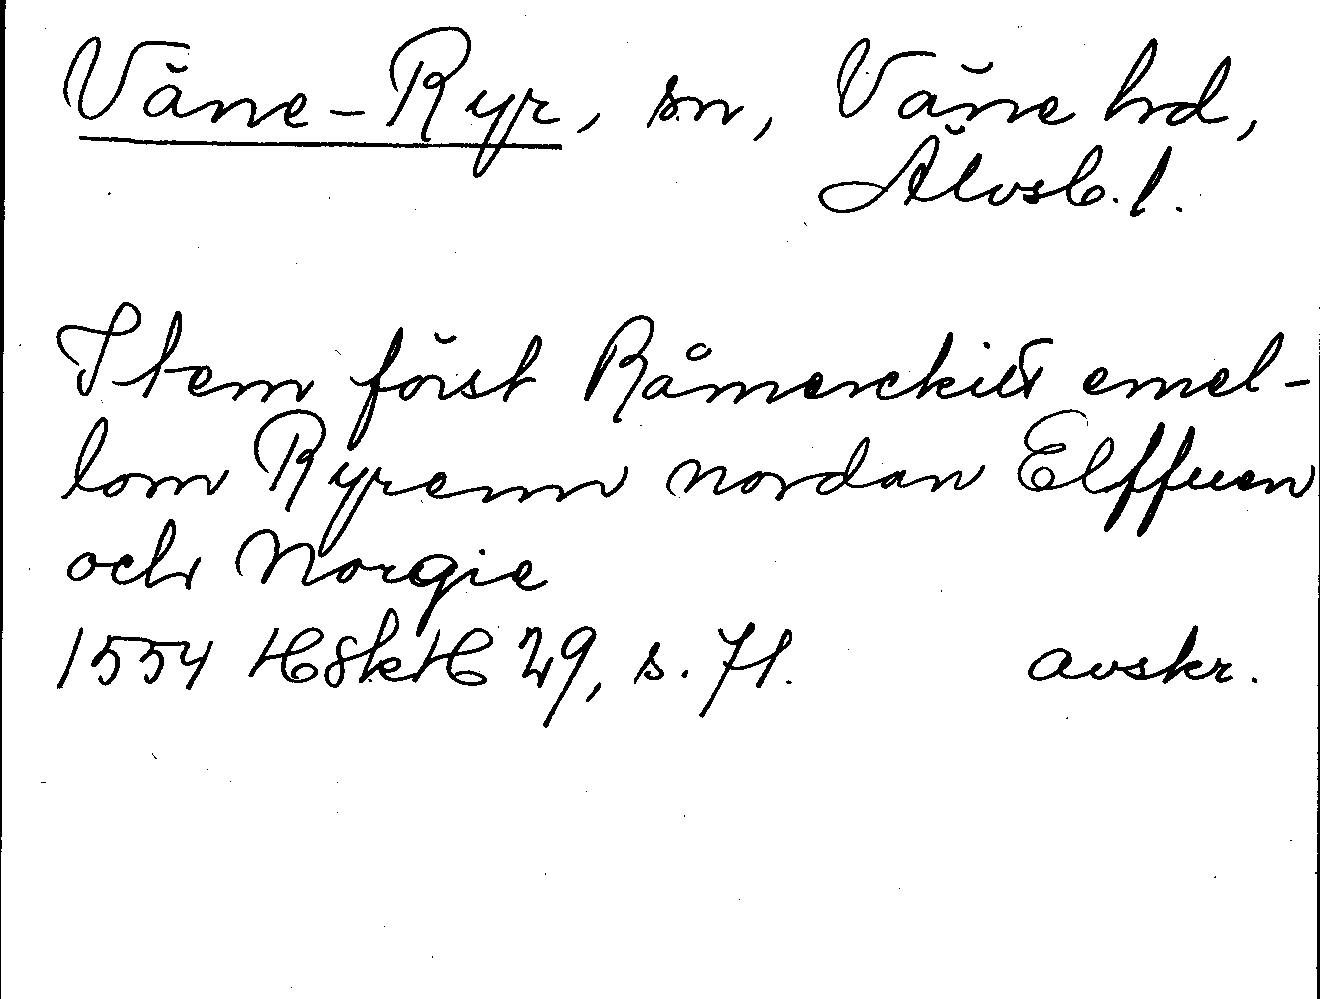 Väne-Ryr, sn, Väne hd,
Älvsb. l.
Item först Råmerckitt emel-
lom Ryrenn nordan Elffuen
och Norgie
1554 HSkH 29, s. 71. avskr.